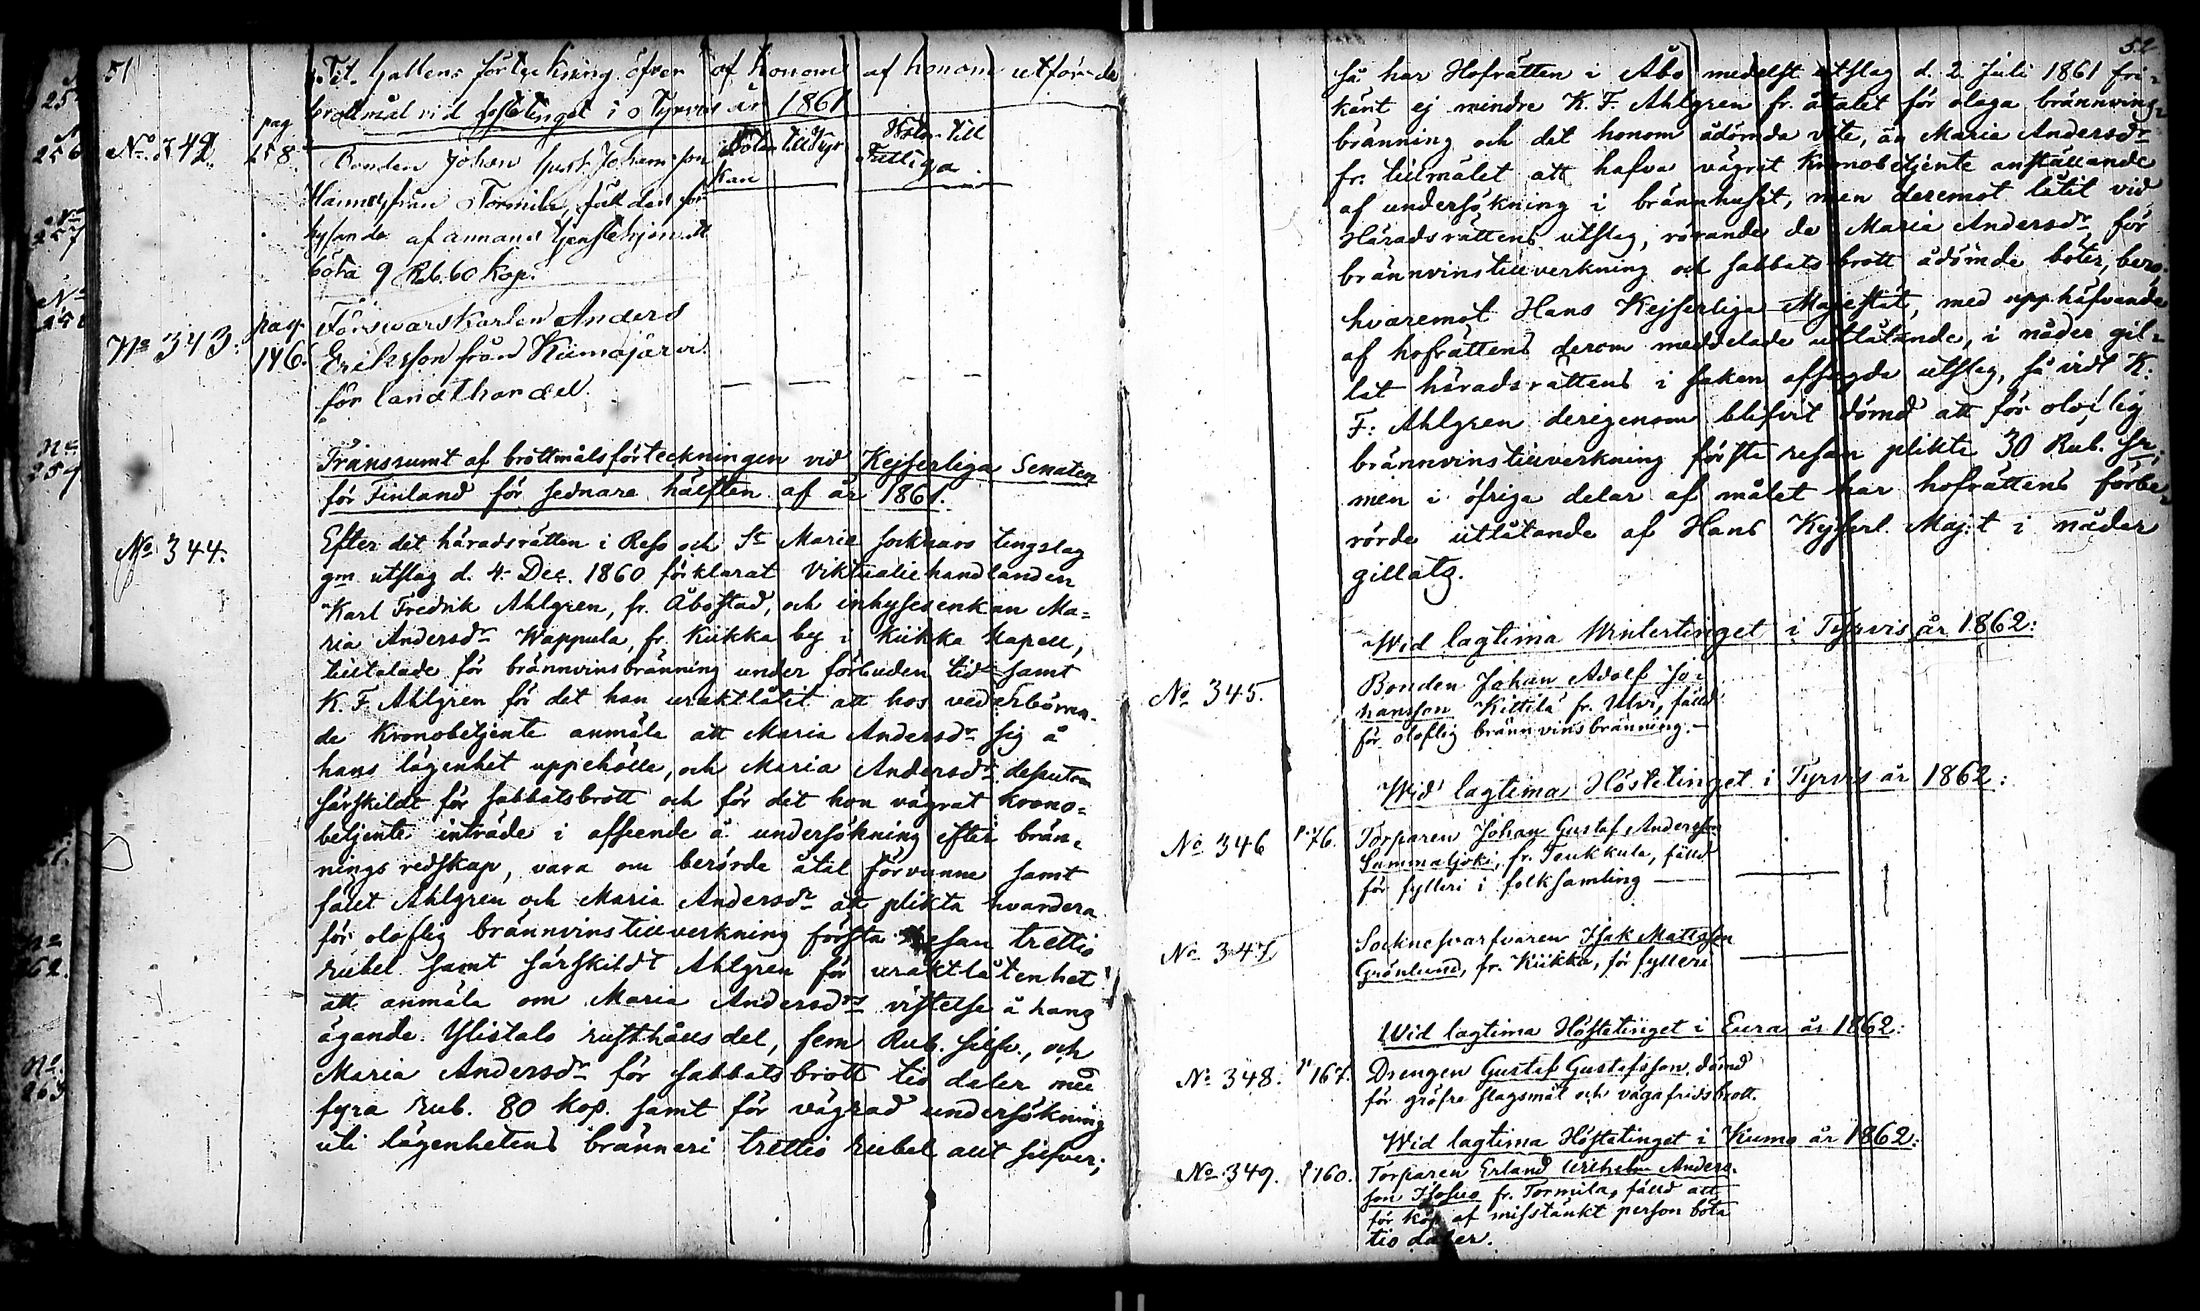 51
Tit. Gallens förteckning öfver af honom af honom utförde
brottmål vid hösttinget i Tyrvis år 1861
No 342. pag 258. Bonden Johan Gust. Johansson
Böter till Kyrkan
Böter till Fattiga
Hannu från Tormila fäld den för
hysande af annans tjenstehjon att
böta 9 Rub. 60 kop.
No 343. pag. 146. Försvarskarlen Anders
Eriksson från Kiimajärvi
för landthandel.
Transsumt af brottmålsförteckningen vid Kejserliga Senaten
för Finland för sednare hälften af år 1861.
No 344.
Efter det häradsrätten i Reso och St Marie socknars tingslag
gm utslag d. 4 Dec. 1860 förklarat Viktualiehandlanden
Karl Fredrik Ahlgren, fr. Åbo stad, och inhysesenkan Ma=
ria Andersdr Wappula, fr. Kiikka by i Kiikka Kapell,
tilltalade för brännvinsbränning under förbuden tid samt
K. F. Ahlgren för det han uraktlåtit att hos vederböran=
de Kronobetjente anmäla att Maria Andersdr sig å
hans lägenhet uppehölle, och Maria Andersdr dessutom
särskildt för sabbatsbrott och för det hon vägrat krono=
betjente inträde i afseende å undersökning efter brän=
nings redskap, vara om berörde åtal förvunne samt
fält Ahlgren och Maria Andersdr att plikta hvardera
för oloflig brännvinstillverkning första resan trettio
rubel samt särskildt Ahlgren för uraktlåtenhet
att anmäla om Maria Andersdrs vistelse å hans
ägande Ylistalo rusthålls del, fem Rub. silfv., och
Maria Andersdr för sabbatsbrott tio daler med
fyra rub. 80 kop. samt för vägrad undersökning
uti lägenhetens bränneri trettio rubel allt silfver;
52
så har Hofrätten i Åbo medelst utslag d. 2 Juli 1861 fri=
känt ej mindre K. F. Ahlgren fr. åtalet för olaga brännvins=
bränning och det honom ådömda vite, än Maria Andersdr
fr. tillmålet att hafva vägrat Kronobetjente anställande
af undersökning i brännhuset, men deremot låtit vid
Häradsrättens utslag, rörande de Maria Andersdr för
brännvinstillverkning och sabbatsbrott ådömde böter, bero.
hvaremot Hans Kejserliga Majestät, med upphäfvande
af hofrättens derom meddelade utlåtande, i nåder gil=
lat häradsrättens i saken afsagde utslag, så vidt K.
F. Ahlgren derigenom blifvit dömd att för oloflig
brännvinstillverkning första resan plikta 30 Rub. sr,
men i öfriga delar af målet har hofrättens förbe=
rörde utlåtande af Hans Kejserl. Maj:t i nåder
gillats.
Wid lagtima Wintertinget i Tyrvis år 1862:
No 345.
Bonden Johan Adolf Jo=
hansson Kittilä fr. Ulvi, fälld
för oloflig brännvinsbränning.
Wid lagtima Höstetinget i Tyrvis år 1862:
No 346 p. 76. Torparen Johan Gustaf Andersson
Sammaljoki, fr. Teukkula, fälld
för fylleri i folksamling
No 347
Socknesvarfvaren Isak Mattsson
Grönlund, fr. Kiikka, för fylleri
Wid lagtima Höstetinget i Eura år 1862:
No 348. p 167. Drengen Gustaf Gustafsson, dömd
för gröfre slagsmål och vägafridsbrott.
Wid lagtima Höstetinget i Kumo år 1862:
No 349. p 160. Torparen Erland Wilhelm Anders=
son fr. Tormila, fälld att
för köp af misstänkt person böta
tio daler.